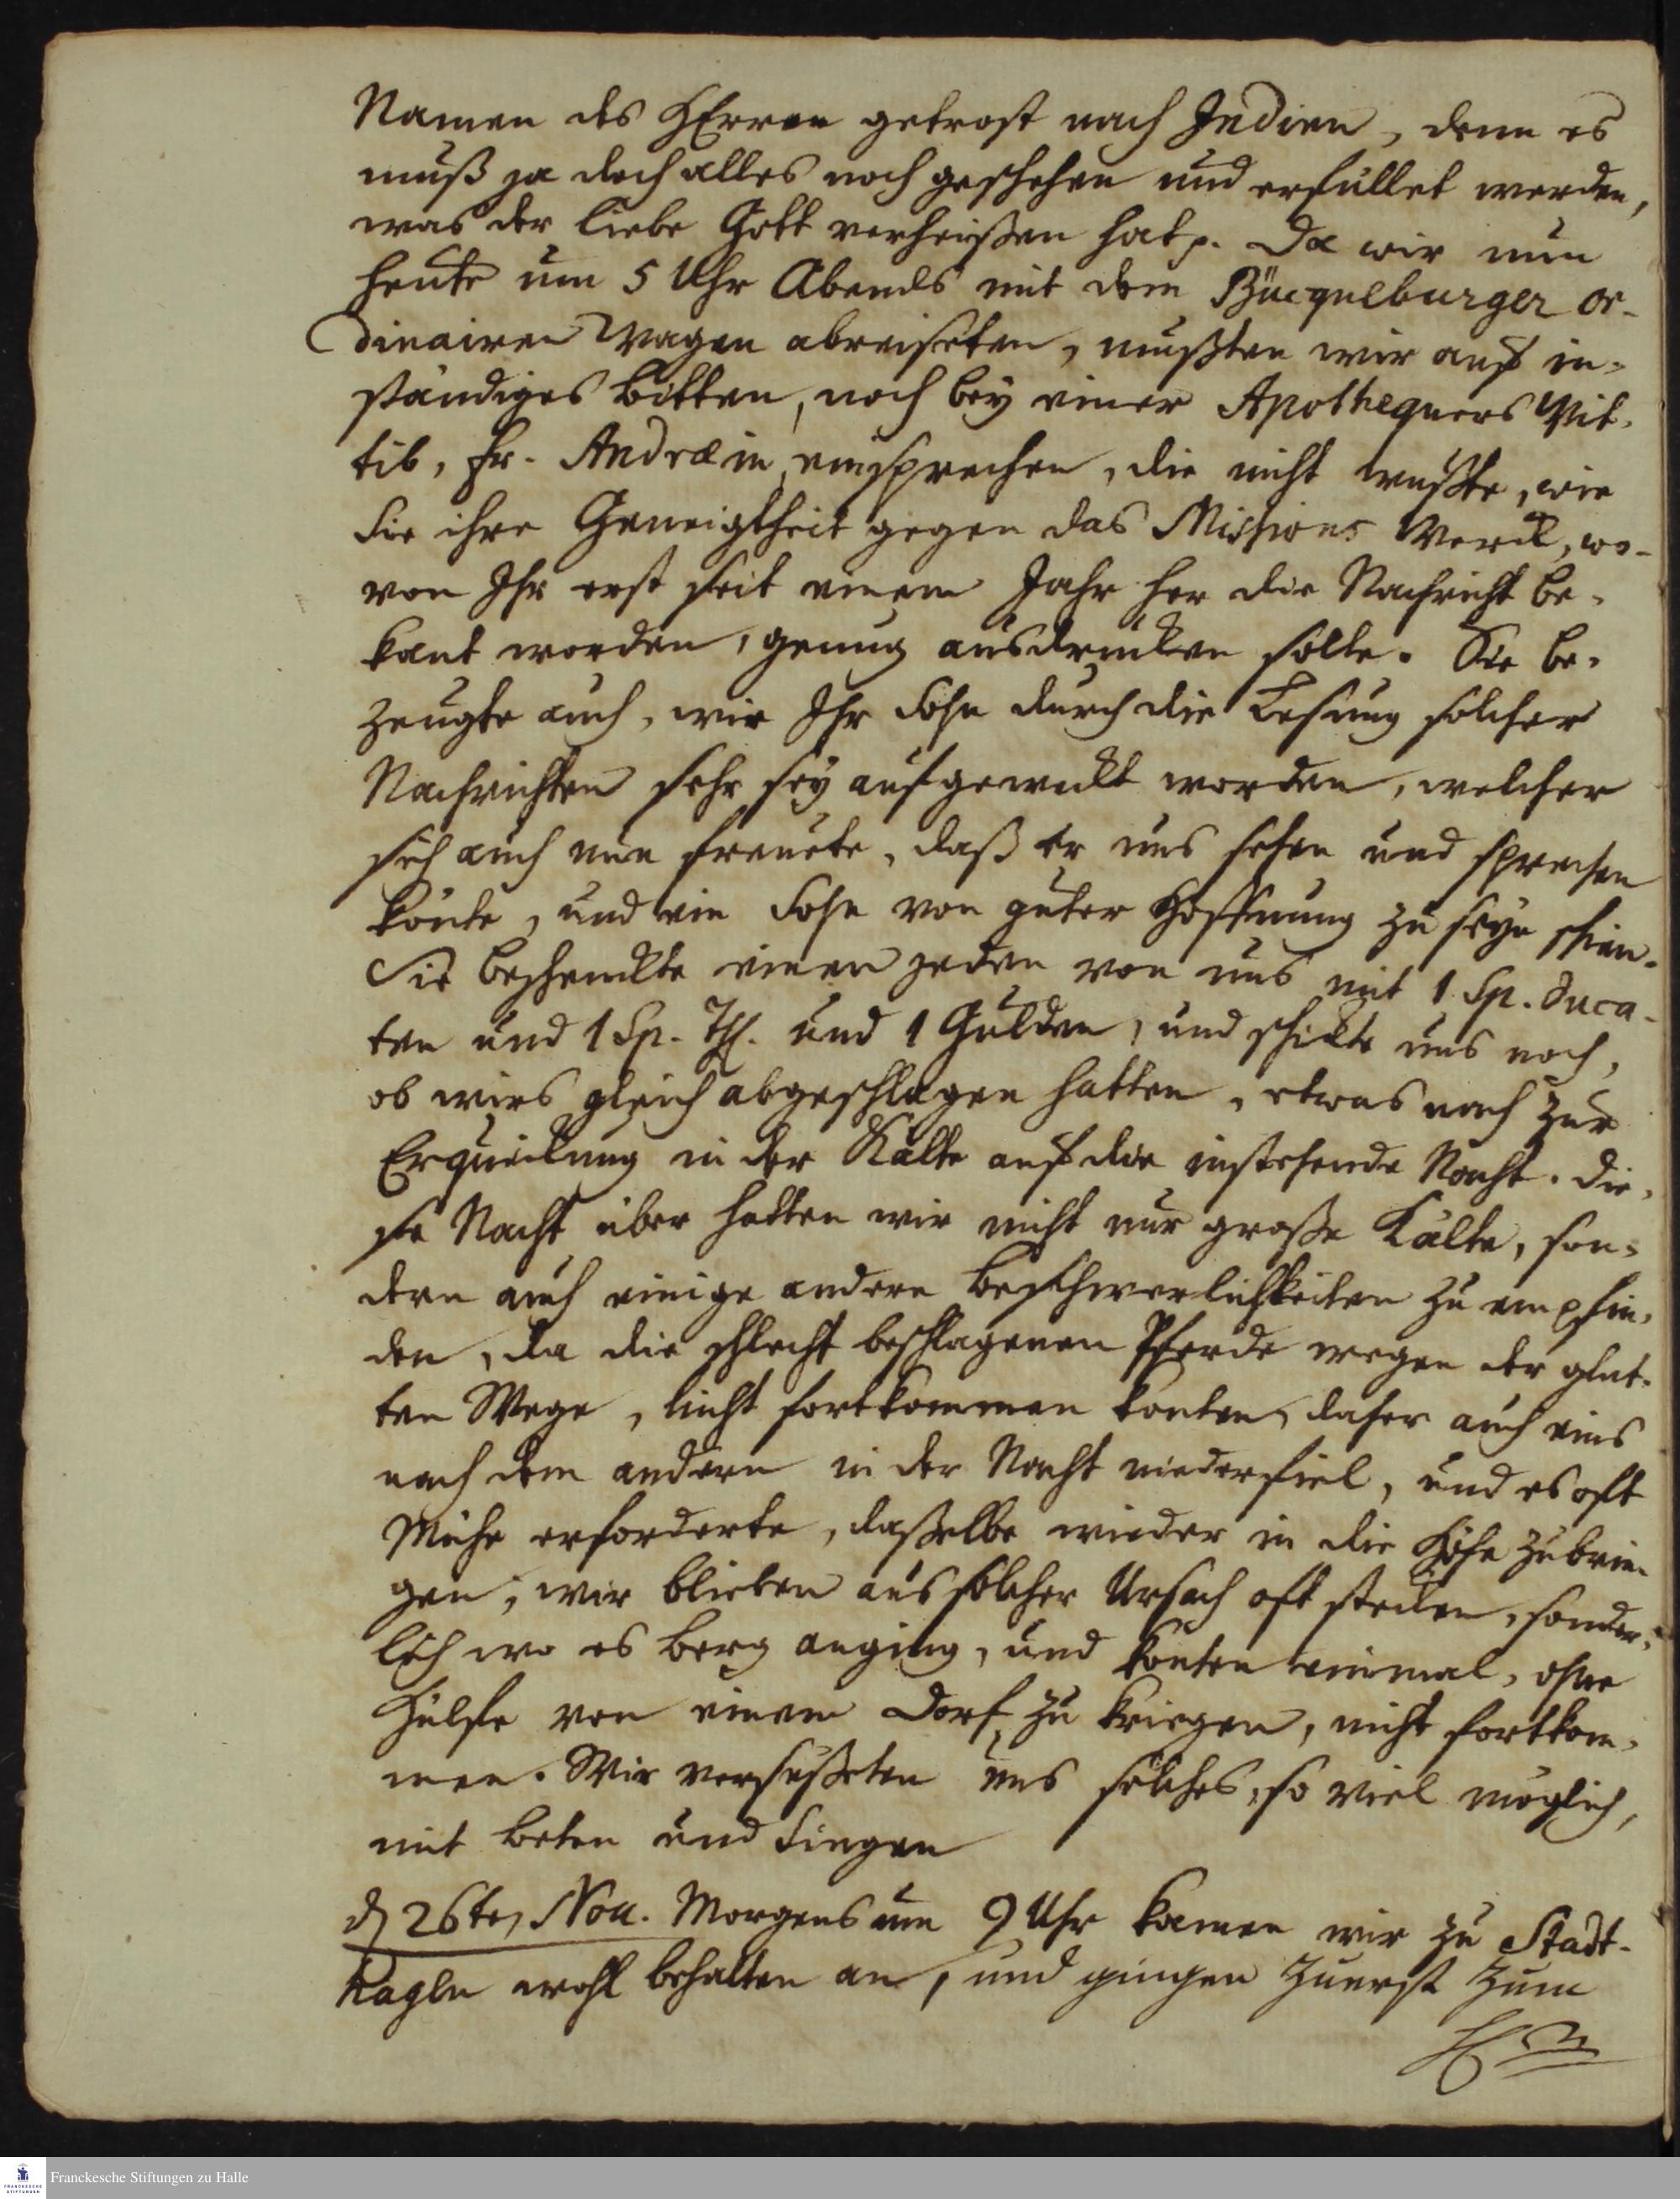 Namen des HErren getrost nach Indien, denn es
muß ja doch alles noch geschehen und erfüllet werden,
was der liebe Gott verheißen hat p. Da wir nun
heute um 5 Uhr Abends mit dem Bücquelburger or-
dinairen Wagen abreiseten, mußten wir auf in-
ständiges bitten, noch bey einer Apothequers Wit-
tib, Fr. Andræin einsprechen, die nicht wußte, wie
Sie ihre Geneigtheit gegen das Missions Werck, wo-
von Ihr erst seit einem Jahr her die Nachricht be-
kant worden, genug ausdrucken solte. Sie be-
zeugte auch, wie Ihr Sohn durch die Lesung solcher
Nachrichten sehr sey aufgeweckt worden, welcher
sich auch nun freuete, daß er uns sehen und sprechen
könte, und ein Sohn von guter Hoffnung zu seyn schien.
Sie beschenckte einen jeden von uns mit 1 Sp. Duca-
ten und 1 Sp. Thl. und 1 Gulden, und schickte uns noch,
ob wirs gleich abgeschlagen hatten, etwas nach zur
Erquickung in der Kälte auf die instehende Nacht. Die-
se Nacht über hatten wir nicht nur große Kälte, son-
dern auch einige andere beschwerlichkeiten zu empfin-
den, da die schlecht beschlagenen Pferde wegen der glat-
ten Wege, nicht fortkommen konten, daher auch eins
nach dem andern in der Nacht niederfiel, und es oft
Mühe erforderte, daßelbe wieder in die Höhe zu brin-
gen; wir blieben aus solcher Ursach oft stecken, sonder-
lich wo es berg anging, und konten einmal, ohne
Hülfe von einem Dorf zu kriegen, nicht fortkom-
men. Wir versüßeten uns solches, so viel möglich,
mit beten und Singen
d 26ten Nov. Morgens um 9 Uhr kamen wir zu Stadt-
hagen wohl behalten an, und gingen zuerst zum